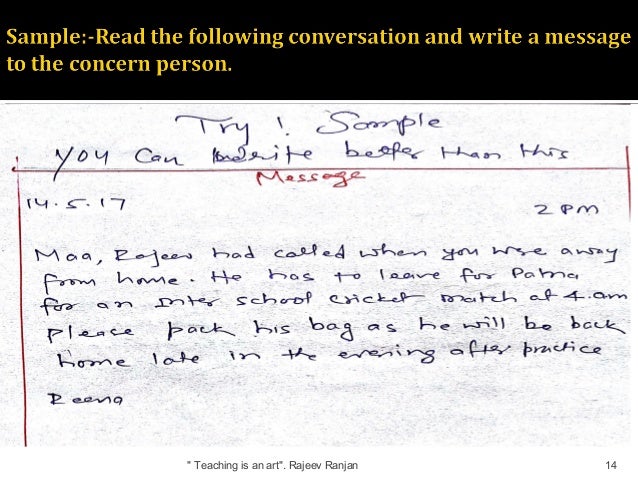 Sample:-Read the following conversation and write a message
to the concern person.
Try! Sample
You can write better than this
Message
14.5.17 2 PM
Maa, Rajeev had called when you were away
from home. He has to leave for Patna
for an Inter school cricket match at 4.am
please pack his bag as he will be back
home late in the evening after practice
Reena
" Teaching is an art". Rajeev Ranjan 14